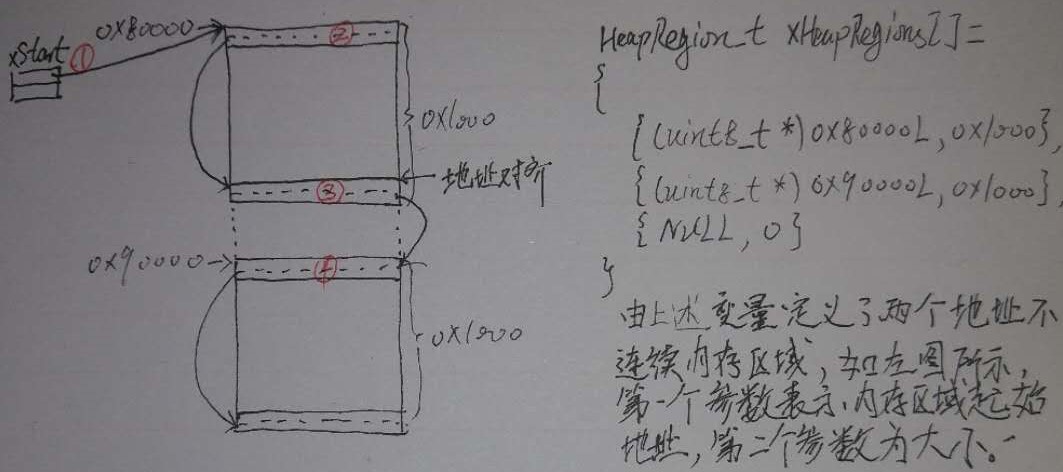 0x80000
xStart ①
②
0x1000
地址对齐
③
0x90000
④
0x1000
HeapRegion_t xHeapRegions[]=
{
{(uint8_t *)0x80000L, 0x1000},
{(uint8_t *)0x90000L, 0x1000},
{NULL, 0}
}
由上述变量定义了两个地址不
连续内存区域, 如左图所示,
第一个参数表示内存区域起始
地址, 第二个参数为大小。